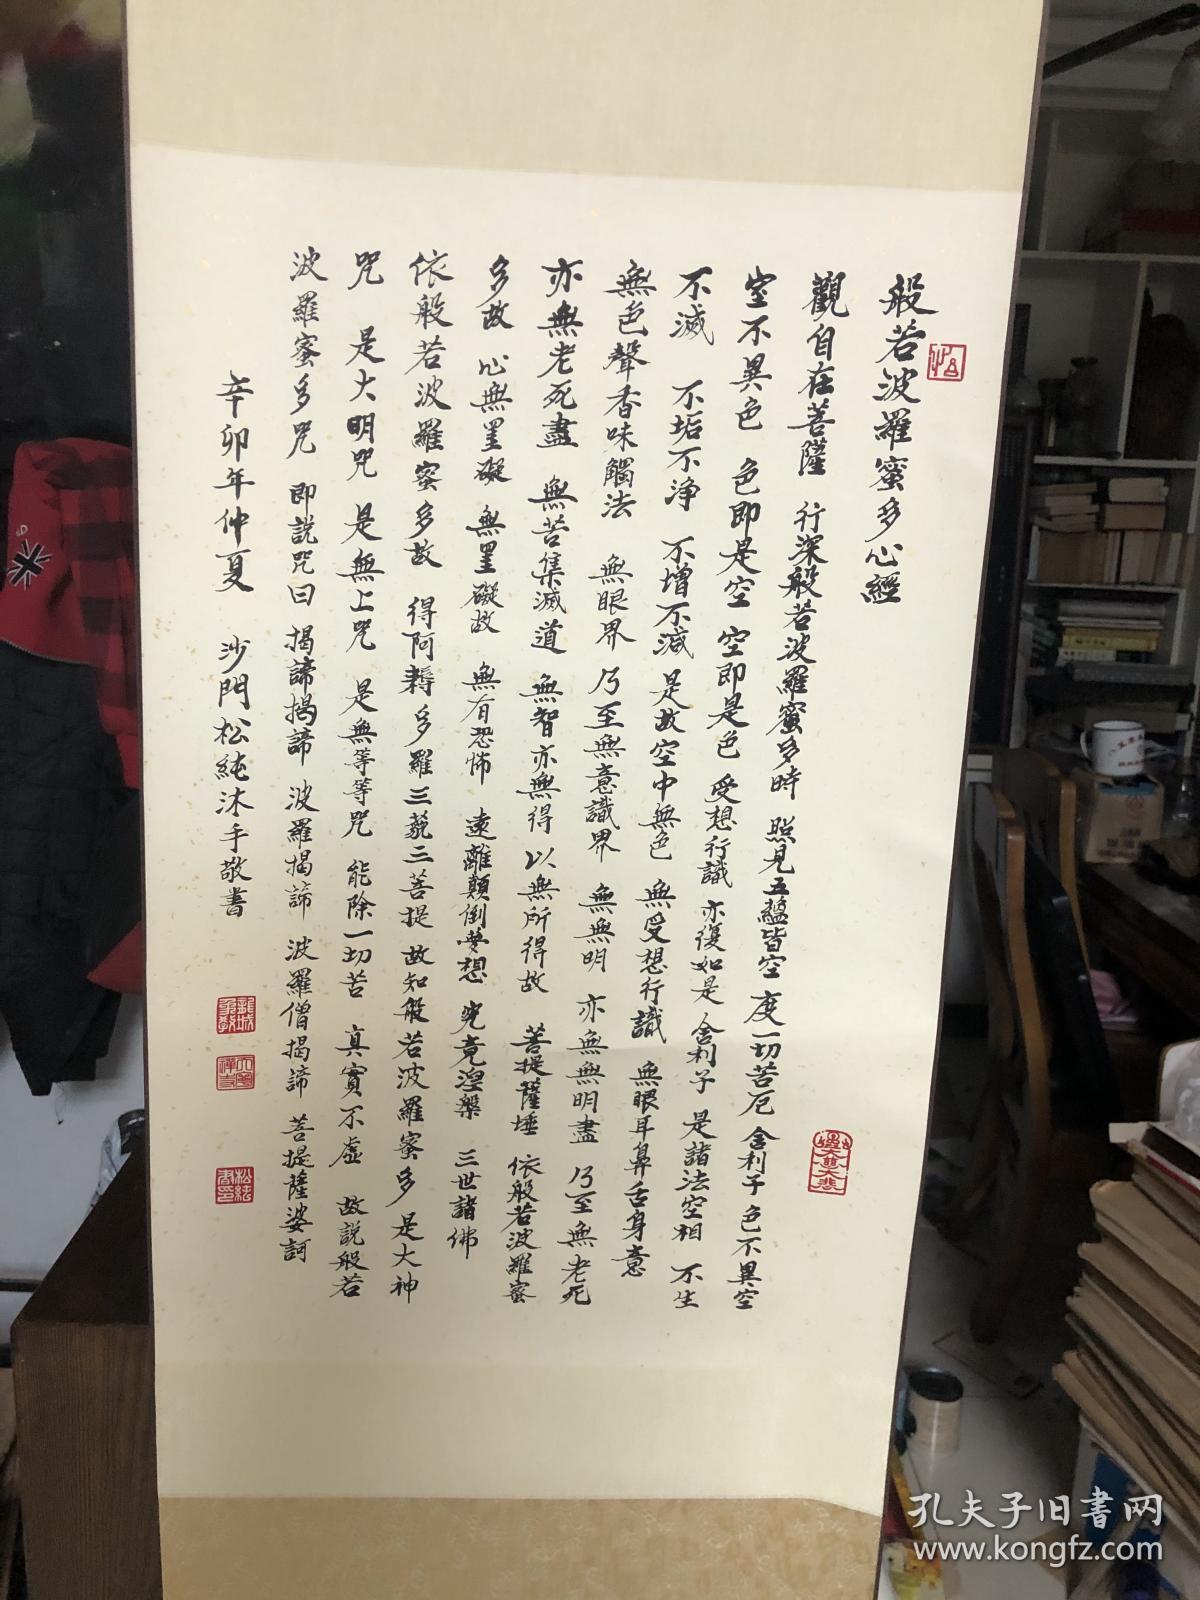 般若波羅蜜多心經
觀自在菩薩 行深般若波羅蜜多時 照見五蘊皆空 度一切苦厄 舍利子 色不異空
空不異色 色即是空 空即是色 受想行識 亦復如是 舍利子 是諸法空相 不生
不滅 不垢不淨 不增不減 是故空中無色 無受想行識 無眼耳鼻舌身意
無色聲香味觸法 無眼界 乃至無意識界 無無明 亦無無明盡 乃至無老死
亦無老死盡 無苦集滅道 無智亦無得 以無所得故 菩提薩埵 依般若波羅蜜
多故 心無罣礙 無罣礙故 無有恐怖 遠離顛倒夢想 究竟涅槃 三世諸佛
依般若波羅蜜多故 得阿耨多羅三藐三菩提 故知般若波羅蜜多 是大神
咒 是大明咒 是無上咒 是無等等咒 能除一切苦 真實不虛 故說般若
波羅蜜多咒 即說咒曰 揭諦揭諦 波羅揭諦 波羅僧揭諦 菩提薩婆訶
辛卯年仲夏 沙門松純沐手敬書
松純
孔夫子旧書网
www.kongfz.com